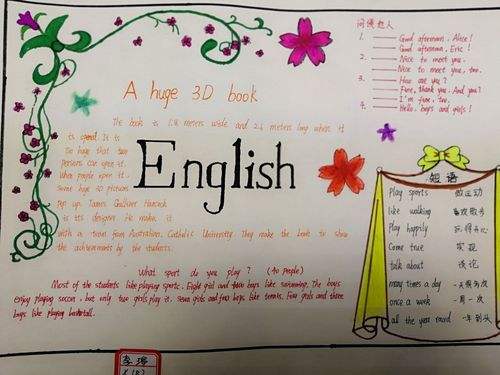 A huge 3D book
The book is 1.8 meters wide and 2.6 meters long when it
is opend. It is
so huge that two
persons can open it.
When people open it.
some huge 3D pictures
Pop up. James Gulliver Hancock
is its designer. He makes it
with a team from Australian Catholic University. They make the book to show
the achievements by the students.
English
What sport do you play? (40 people)
Most of the students like playing sports. Eight girl and boys like swimming. The boys
enjoy playing soccer, but only two girls play it. Seven girls and four boys like tennis. Five girls and three
boys like playing basketball.
问候老人
1. Good afternoon, Alice!
Good afternoon, Eric!
2. Nice to meet you.
Nice to meet you, too.
3. How are you?
Fine, thank you. And you?
4. I'm fine, too.
Hello, boys and girls!
短语
Play sports 做运动
like walking 喜欢散步
Play happily 玩得开心
Come true 实现
talk about 谈论
many times a day 一天很多次
once a week 一周一次
all the year round 一年到头